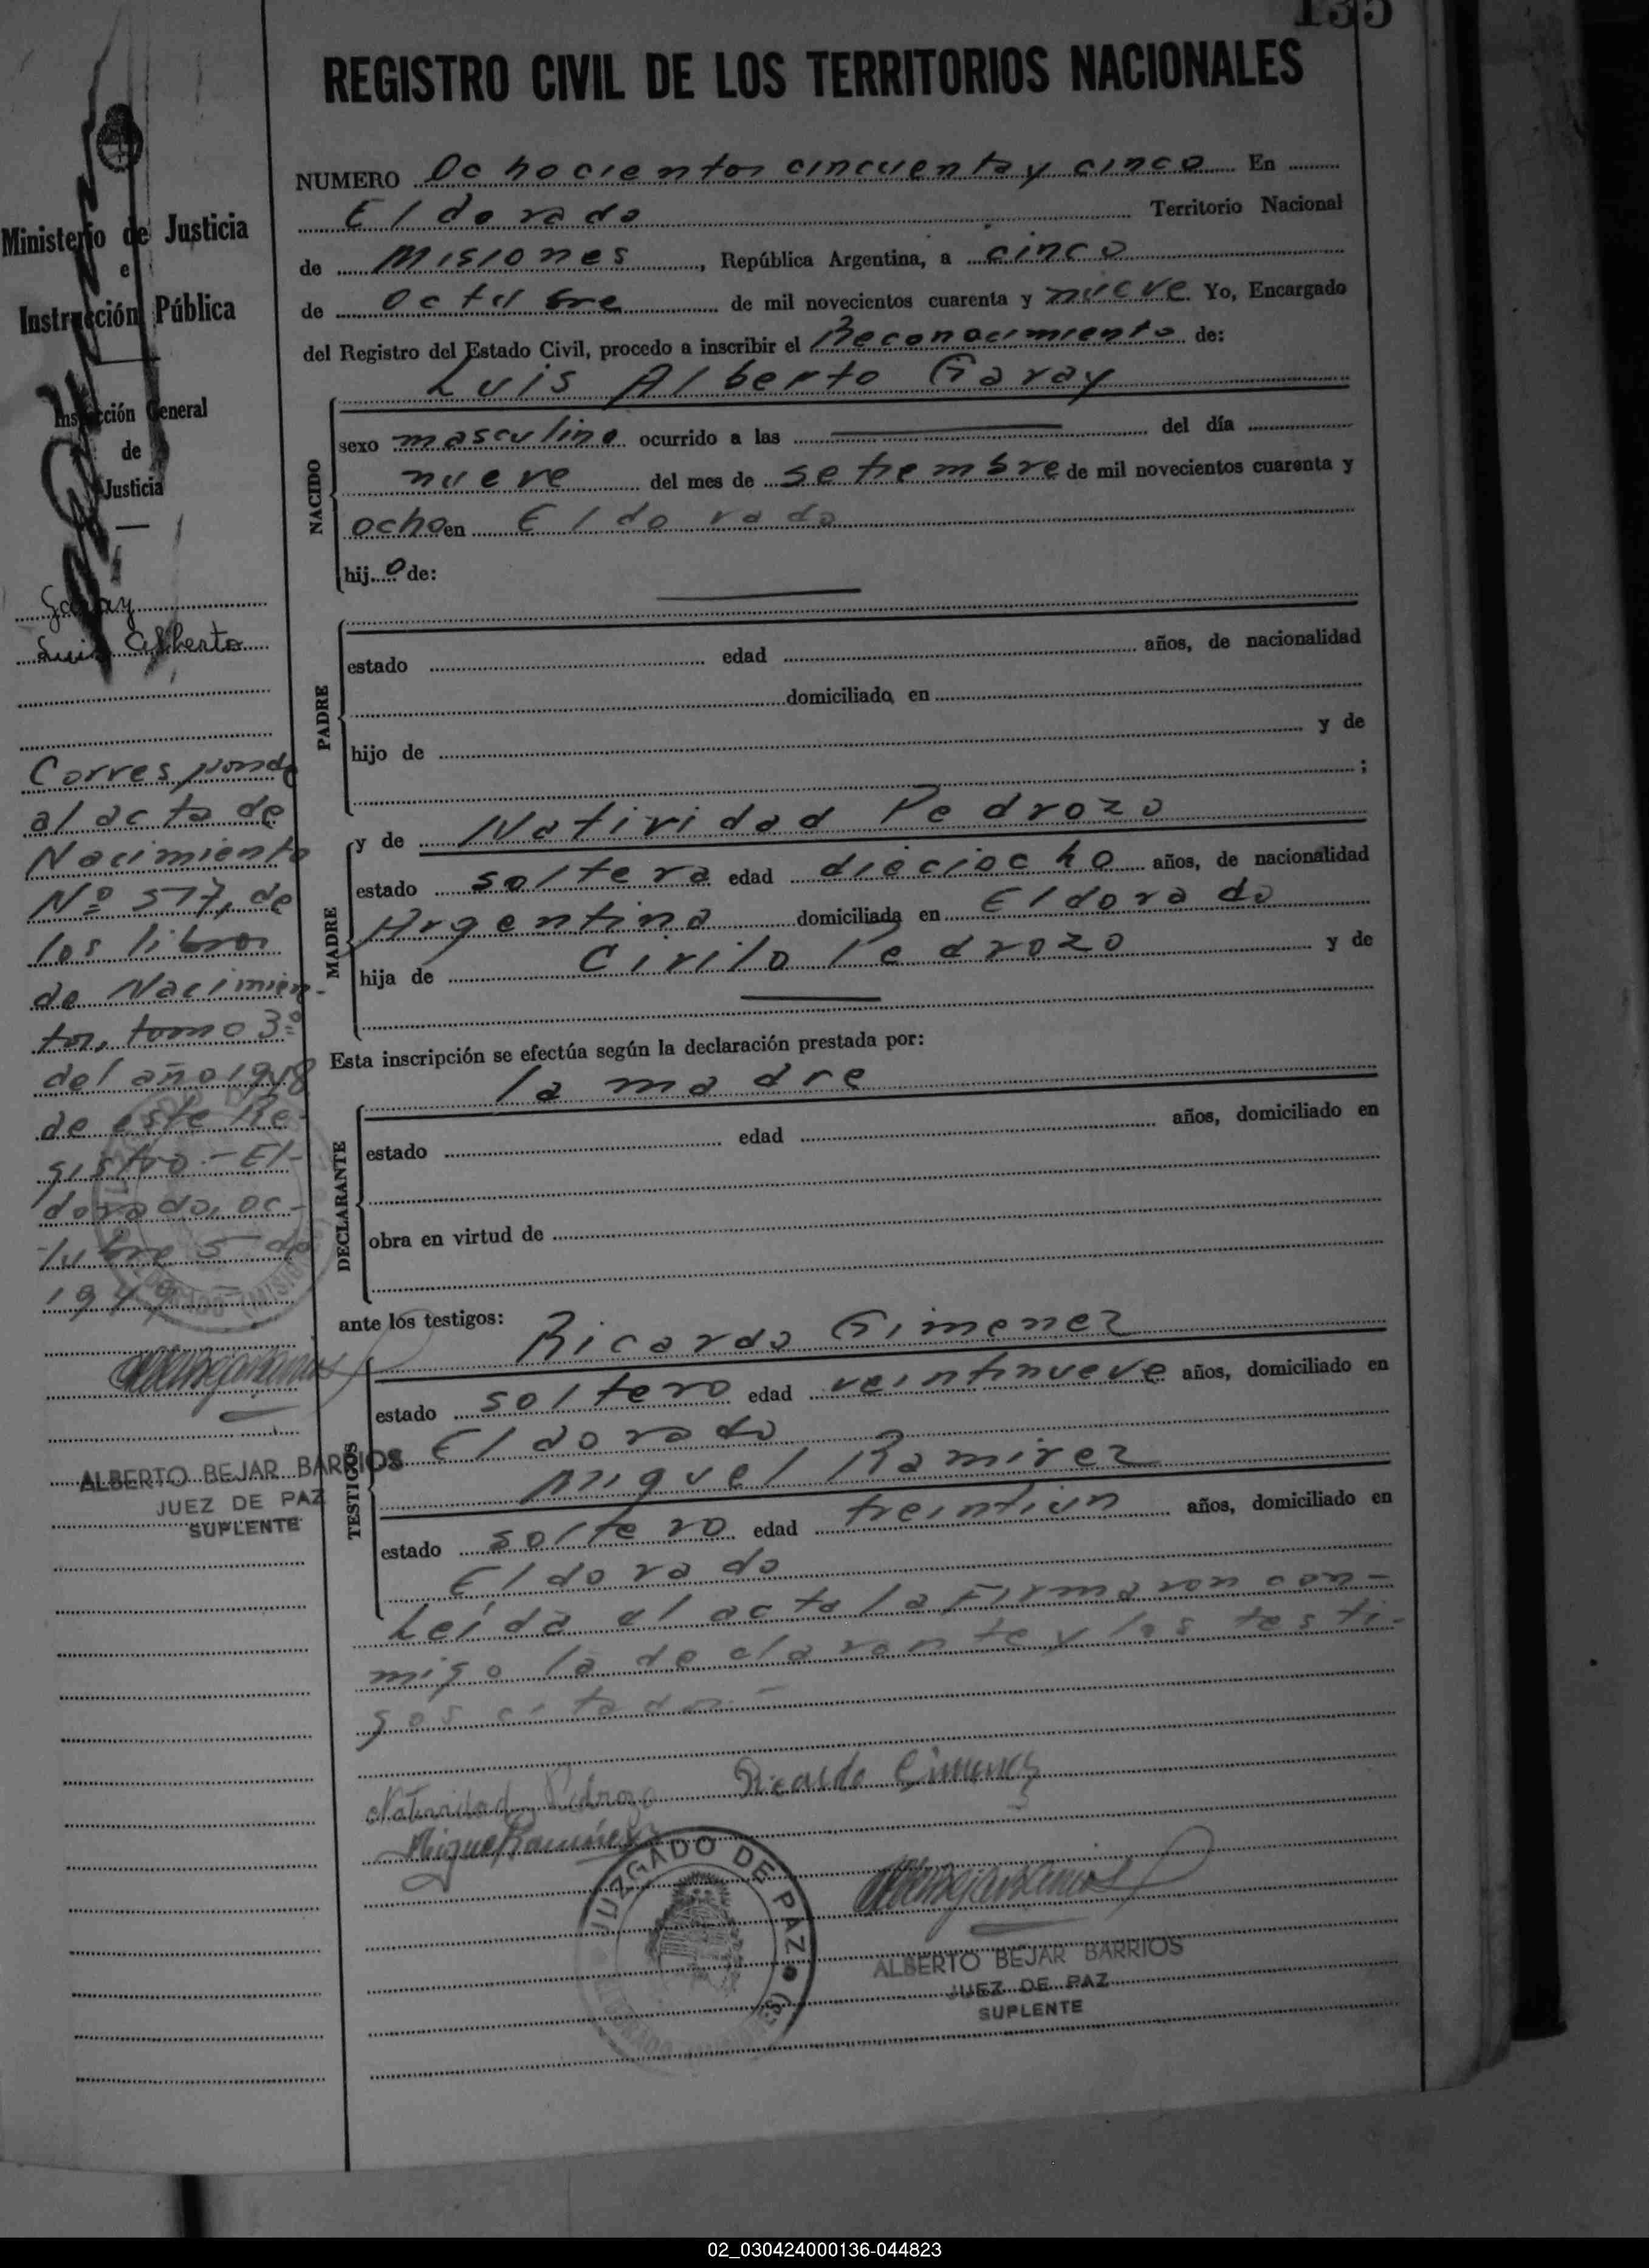 135
REGISTRO CIVIL DE LOS TERRITORIOS NACIONALES
Ministerio de Justicia
e
Instrucción Pública
Inspección General
de
Justicia
Garay
Luis Alberto
Corresponde
al acta de
Nacimiento
Nº 577, de
los libros
de Nacimien-
tos, tomo 3º
del año 1948
de este Re-
gistro.- El-
dorado, oc-
tubre 5 de
1949
ALBERTO BEJAR BARRIOS
JUEZ DE PAZ
SUPLENTE
NUMERO Ochocientos cincuenta y cinco En
Eldorado Territorio Nacional
de Misiones, República Argentina, a cinco
de Octubre de mil novecientos cuarenta y nueve Yo, Encargado
del Registro del Estado Civil, procedo a inscribir el Reconocimiento de:
Luis Alberto Garay
NACIDO
sexo masculino ocurrido a las del día
nueve del mes de setiembre de mil novecientos cuarenta y
ocho en Eldorado
hijo de:
PADRE
estado edad años, de nacionalidad
domiciliado en
hijo de y de
;
MADRE
y de Natividad Pedrozo
estado soltera edad dieciocho años, de nacionalidad
Argentina domiciliada en Eldorado
hija de Cirilo Pedrozo y de
Esta inscripción se efectúa según la declaración prestada por:
la madre
DECLARANTE
estado edad años, domiciliado en
obra en virtud de
ante los testigos:
Ricardo Gimenez
TESTIGOS
estado soltero edad veintinueve años, domiciliado en
Eldorado
Miguel Ramirez
estado soltero edad treintiun años, domiciliado en
Eldorado
Leida el acta la Firmaron con-
migo la declarante y los testi-
gos citados.-
Natividad Pedrozo Ricardo Gimenez
Miguel Ramirez
JUZGADO DE PAZ
ALBERTO BEJAR BARRIOS
JUEZ DE PAZ
SUPLENTE
02_030424000136-044823